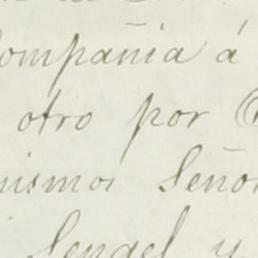 Compañia á
otro por
mismos Seño
Sengel y